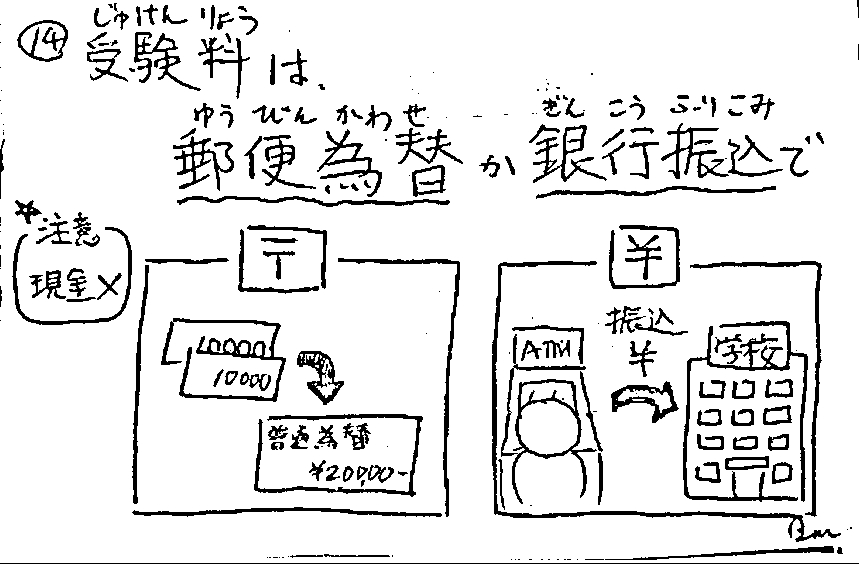 ⑭
じゅけんりょう
受験料は、
ゆうびんかわせ ぎんこうふりこみ
郵便為替か銀行振込で
☆注意
現金×
〒
10000
10000
普通為替
¥20000-
¥
ATM
振込
¥
学校